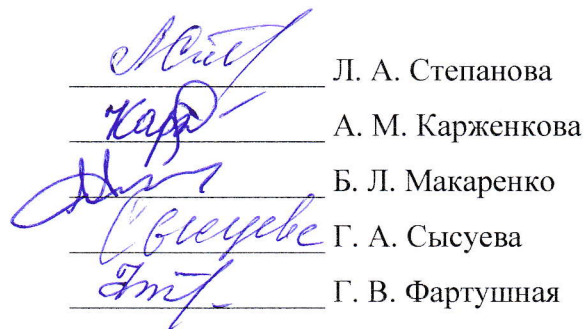 Л. А. Степанова
А. М. Карженкова
Б. Л. Макаренко
Сысуева Г. А. Сысуева
Г. В. Фартушная